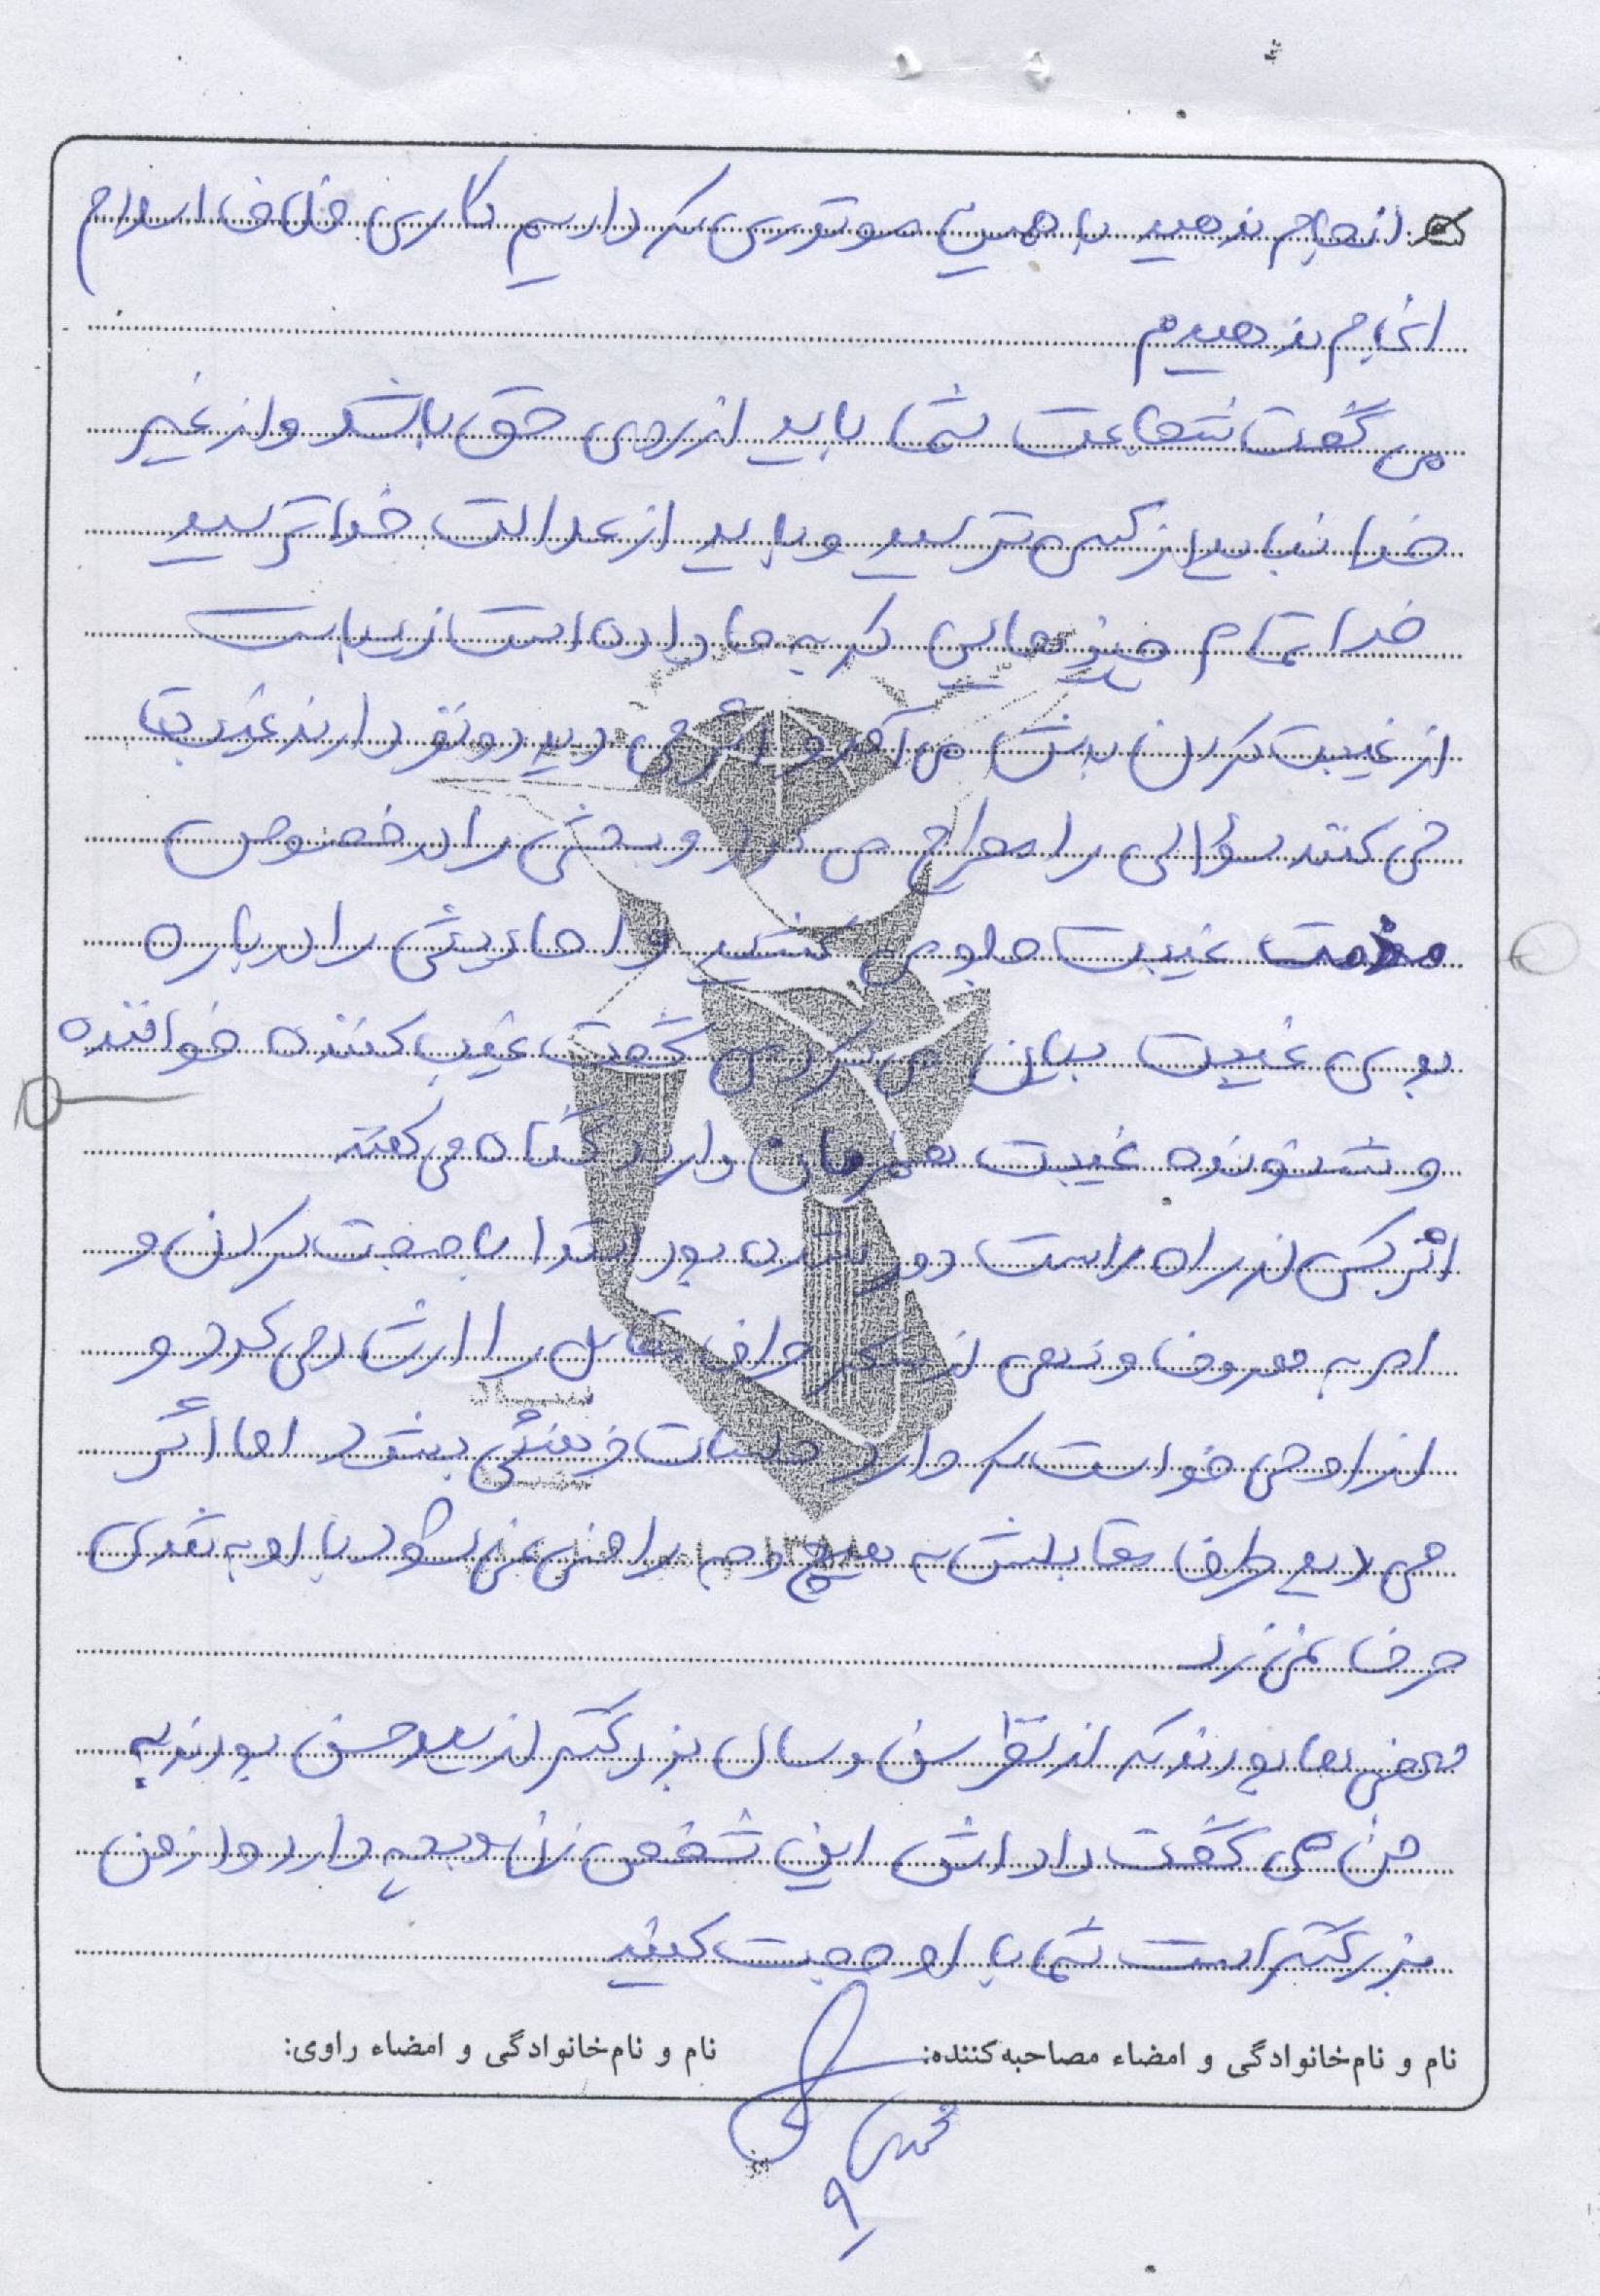 انجام ندهید با همین موتوری که داریم کاری خلاف اسلام
انجام ندهیم
می گفت شجاعت شما باید از روی حق باشد و از غیر
خدا نباید از کسی ترسید و باید از عدالت خدا ترسید
خدا تمام چیزهایی که به ما داده است زیباست
از غیبت کردن بدش می آمد و اگر می دید دو نفر دارند غیبت
می کنند سؤالی را مطرح می کرد و بحثی را در خصوص
مذمت غیبت جلو می کشید و احادیثی را درباره
بوی غیبت بیان می کرد می گفت غیبت کننده خواننده
و شنونده غیبت همزمان دارند گناه می کنند
اگر کسی از راه راست دور شده بود ابتدا با صحبت کردن و
امر به معروف و نهی از منکر طرف مقابل را ارشاد می کرد و
از او می خواست که وارد جلسات فرهنگی بشود اما اگر
می دید طرف مقابلش به هیچ وجه راضی نمی شود با او به تندی
حرف نمی زد
بعضی ها بودند که از نظر سن و سال بزرگتر از سید حسن بودند به
من می گفت داداش این شخص زن و بچه دارد و از من
بزرگتر است شما با او صحبت کنید
نام و نام‌خانوادگی و امضاء مصاحبه‌کننده: نام و نام‌خانوادگی و امضاء راوی:
۹